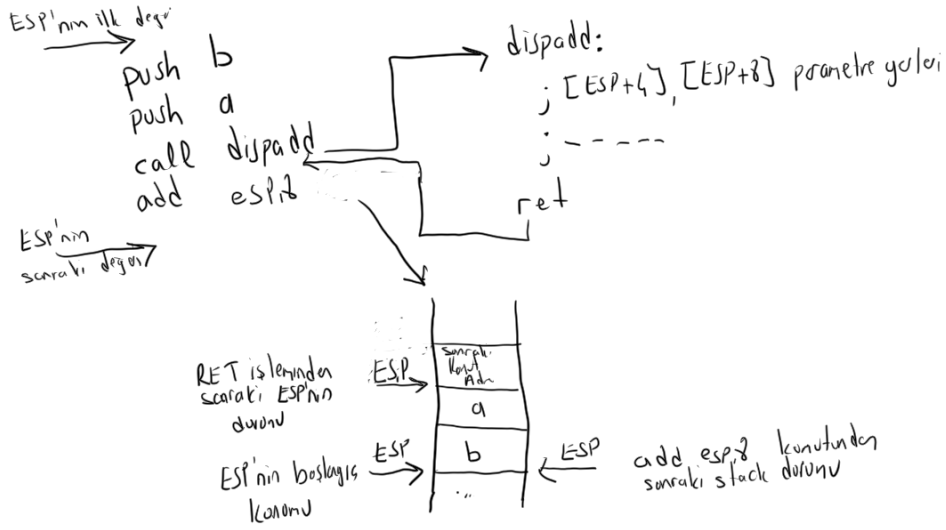 ESP'nin ilk değeri
push b
push a
call dispadd
add esp,8
ESP'nin
sonraki değeri
dispadd:
; [ESP+4], [ESP+8] parametre yerleri
; -----
ret
RET işleminden
sonraki ESP'nin
durumu
ESP
sonraki
Komut
Adr
a
b
...
ESP'nin başlangıç
konumu
ESP
ESP
add esp,8 komutundan
sonraki stack durumu